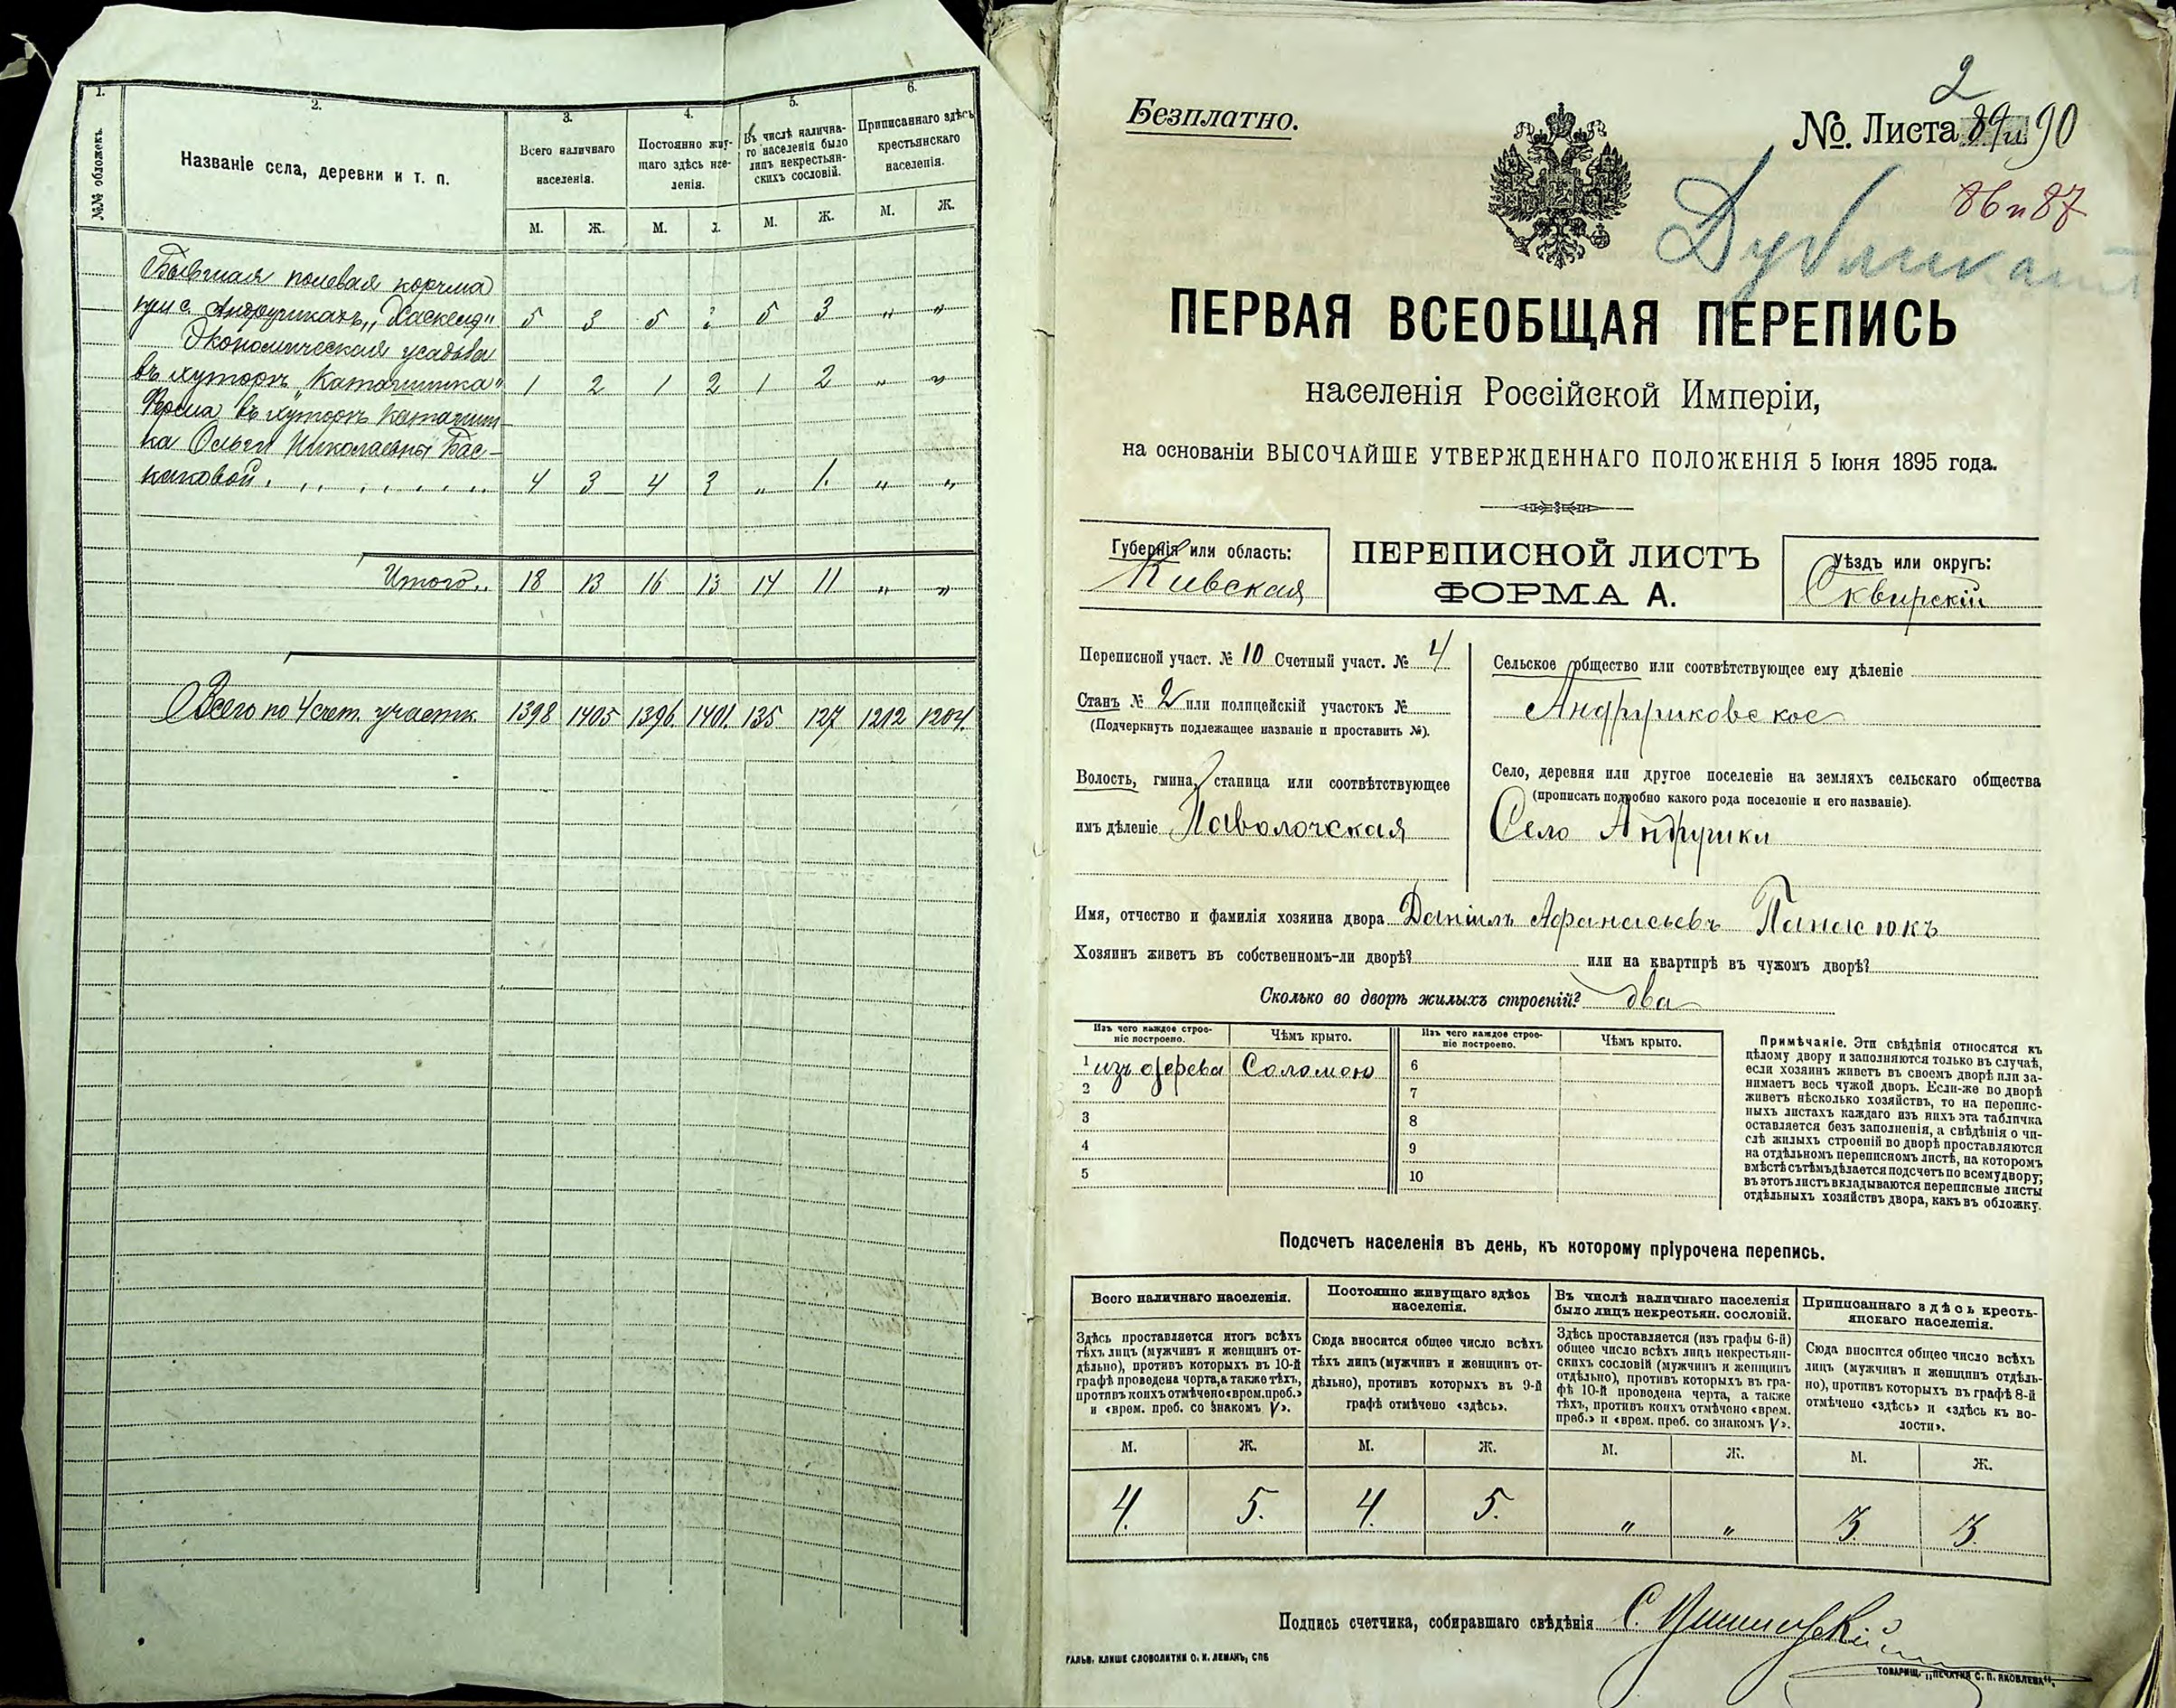 1.
2.
3.
4.
5.
6.
№№ обложекъ.
Названіе села, деревни и т. п.
Всего наличнаго
населенія.
Постоянно жи-
щаго здѣсь нае-
ленія.
Въ числѣ налична-
го населенія было
лицъ некрестьян-
скихъ сословій.
Приписаннаго здѣсь
крестьянскаго
населенія.
М. Ж. М. М. Ж. М. Ж.
Бывшая полевая корчма
при с. Андрушкахъ 5 3 5 5 3 " "
Экономическая усадьба
въ хуторѣ 1 2 1 2 1 2 " "
Ферма въ хуторѣ
ка Ольги Николаевны Бас-
каковой 4 3 4 3 " 1. " "
Итого.. 18 13 16 13 14 11 " "
Всего по 4 счет. участк. 1398 1405 1396. 1401. 135 127 1212 1204.
Безплатно.
2
№. Листа 89 и 90
86 и 87
Дубликатъ
ПЕРВАЯ ВСЕОБЩАЯ ПЕРЕПИСЬ
населенія Россійской Имперіи,
на основаніи ВЫСОЧАЙШЕ УТВЕРЖДЕННАГО ПОЛОЖЕНІЯ 5 Іюня 1895 года.
Губернія или область:
Кіевская
ПЕРЕПИСНОЙ ЛИСТЪ
ФОРМА А.
Уѣздъ или округъ:
Сквирскій
Переписной участ. № 10 Счетный участ. № 4
Станъ № 2 или полицейскій участокъ №
(Подчеркнуть подлежащее названіе и проставить №).
Волость, гмина, станица или соотвѣтствующее
имъ дѣленіе Паволочская
Сельское общество или соотвѣтствующее ему дѣленіе
Андрушковское
Село, деревня или другое поселеніе на земляхъ сельскаго общества
(прописать подробно какого рода поселеніе и его названіе).
Село Андрушки
Имя, отчество и фамилія хозяина двора Даніилъ Афанасьевъ Панасюкъ
Хозяинъ живетъ въ собственномъ-ли дворѣ? или на квартирѣ въ чужомъ дворѣ?
Сколько во дворѣ жилыхъ строеній? два
Изъ чего каждое строе-
ніе построено.
Чѣмъ крыто.
Изъ чего каждое строе-
ніе построено.
Чѣмъ крыто.
1 изъ дерева Соломою 6
2 7
3 8
4 9
5 10
Примѣчаніе. Эти свѣдѣнія относятся къ
цѣлому двору и заполняются только въ случаѣ,
если хозяинъ живетъ въ своемъ дворѣ или за-
нимаетъ весь чужой дворъ. Если-же во дворѣ
живетъ нѣсколько хозяйствъ, то на перепис-
ныхъ листахъ каждаго изъ нихъ эта табличка
оставляется безъ заполненія, а свѣдѣнія о чи-
слѣ жилыхъ строеній во дворѣ проставляются
на отдѣльномъ переписномъ листѣ, на которомъ
вмѣстѣ съ тѣмъ дѣлается подсчетъ по всему двору;
въ этотъ листъ вкладываются переписные листы
отдѣльныхъ хозяйствъ двора, какъ въ обложку.
Подсчетъ населенія въ день, къ которому пріурочена перепись.
Всего наличнаго населенія.
Здѣсь проставляется итогъ всѣхъ
тѣхъ лицъ (мужчинъ и женщинъ от-
дѣльно), противъ которыхъ въ 10-й
графѣ проведена черта, а также тѣхъ,
противъ коихъ отмѣчено «врем. преб.»
и «врем. преб. со знакомъ V».
Постоянно живущаго здѣсь
населенія.
Сюда вносится общее число всѣхъ
тѣхъ лицъ (мужчинъ и женщинъ от-
дѣльно), противъ которыхъ въ 9-й
графѣ отмѣчено «здѣсь».
Въ числѣ наличнаго населенія
было лицъ некрестьян. сословій.
Здѣсь проставляется (изъ графы 6-й)
общее число всѣхъ лицъ некрестьян-
скихъ сословій (мужчинъ и женщинъ
отдѣльно), противъ которыхъ въ гра-
фѣ 10-й проведена черта, а также
тѣхъ, противъ коихъ отмѣчено «врем.
преб.» и «врем. преб. со знакомъ V».
Приписаннаго здѣсь кресть-
янскаго населенія.
Сюда вносится общее число всѣхъ
лицъ (мужчинъ и женщинъ отдѣль-
но), противъ которыхъ въ графѣ 8-й
отмѣчено «здѣсь» и «здѣсь къ во-
лости».
М. Ж. М. Ж. М. Ж. М. Ж.
4. 5. 4. 5. " " 3. 3.
Подпись счетчика, собиравшаго свѣдѣнія С.
ГАЛЬВ. КЛИШЕ СЛОВОЛИТНИ О. И. ЛЕМАНЪ, СПБ
ТОВАРИЩ. „ПЕЧАТНЯ С. П. ЯКОВЛЕВА“.